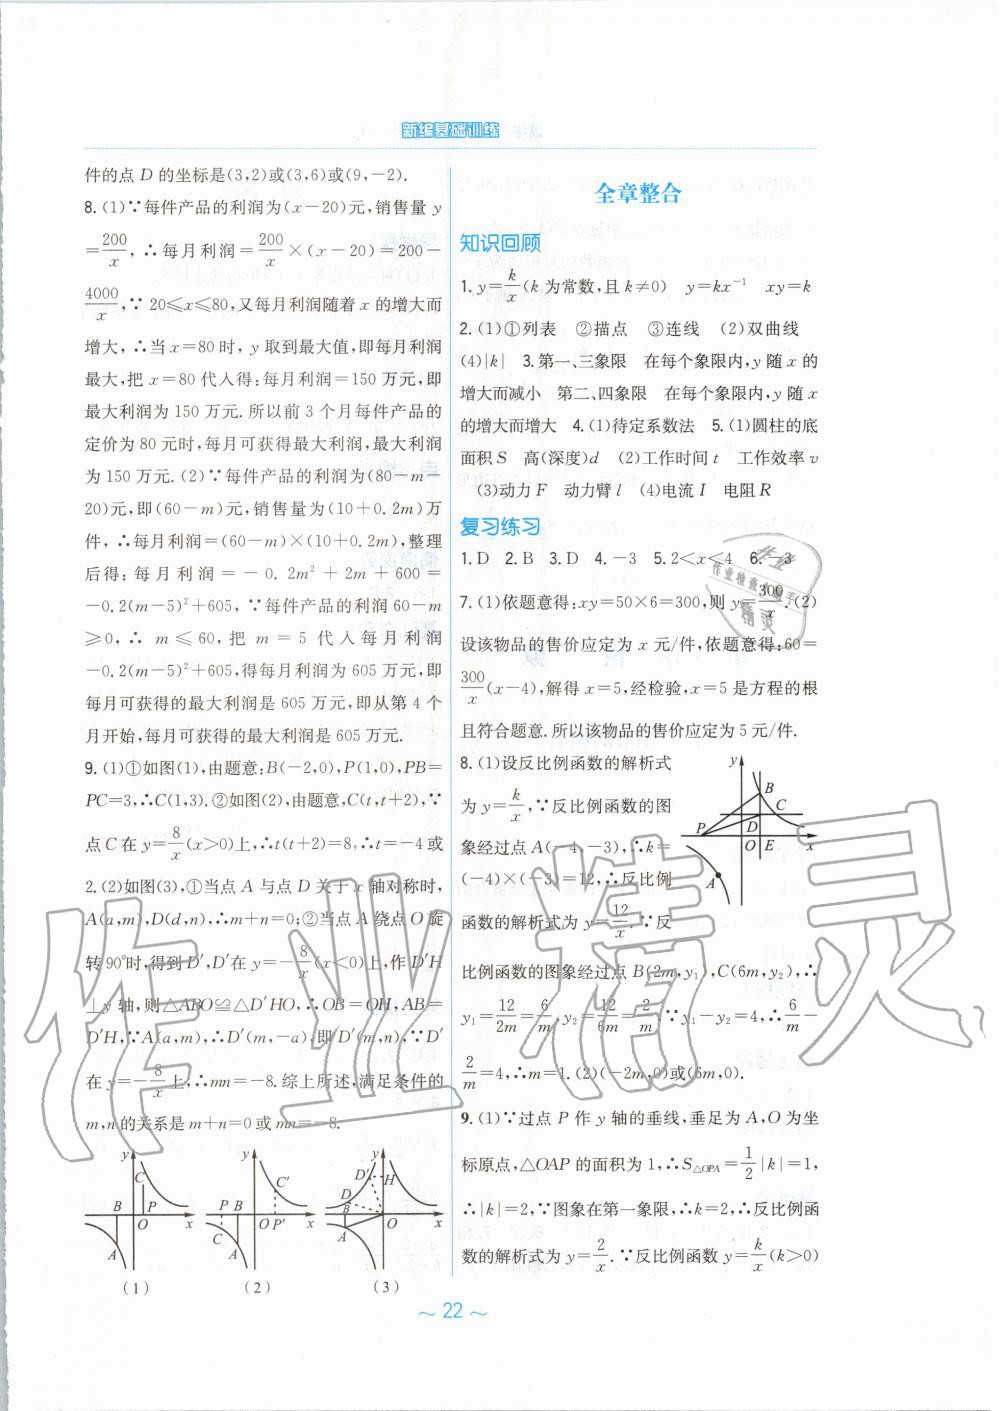 新编基础训练
件的点 D 的坐标是(3,2)或(3,6)或(9,-2).
8.(1)∵每件产品的利润为(x-20)元,销售量 y
=200/x,∴每月利润=200/x×(x-20)=200-
4000/x,∵20≤x≤80,又每月利润随着 x 的增大而
增大,∴当 x=80 时,y 取到最大值,即每月利润
最大,把 x=80 代入得:每月利润=150 万元,即
最大利润为 150 万元.所以前 3 个月每件产品的
定价为 80 元时,每月可获得最大利润,最大利润
为 150 万元.(2)∵每件产品的利润为(80-m-
20)元,即(60-m)元,销售量为(10+0.2m)万
件,∴每月利润=(60-m)×(10+0.2m),整理
后得:每月利润=-0.2m²+2m+600=
-0.2(m-5)²+605,∵每件产品的利润60-m
≥0,∴m≤60,把 m=5 代入每月利润
-0.2(m-5)²+605得:每月利润为 605 万元,即
每月可获得的最大利润是 605 万元,即从第 4 个
月开始,每月可获得的最大利润是 605 万元.
9.(1)①如图(1),由题意:B(-2,0),P(1,0),PB=
PC=3,∴C(1,3).②如图(2),由题意,C(t,t+2),∵
点C在 y=8/x(x>0)上,∴t(t+2)=8,∴t=-4或
2.(2)如图(3),①当点 A 与点 D 关于 x 轴对称时,
A(a,m),D(d,n),∴m+n=0;②当点 A 绕点 O 旋
转90°时,得到D′,D′在 y=-8/x(x<0)上,作 D′H
⊥y 轴,则△ABO≌△D′HO,∴OB=OH,AB=
D′H,∵A(a,m),∴D′(m,-a),即D′(m,n),∵D′
在 y=-8/x上,∴mn=-8.综上所述,满足条件的
m,n的关系是m+n=0或mn=-8.
y C B P O x A
(1)
y C′ P B O P′ x C A
(2)
y D′ H D B O x A
(3)
全章整合
知识回顾
1.y=k/x(k 为常数,且 k≠0) y=kx⁻¹ xy=k
2.(1)①列表 ②描点 ③连线 (2)双曲线
(4)|k| 3.第一、三象限 在每个象限内,y 随 x 的
增大而减小 第二、四象限 在每个象限内,y 随 x
的增大而增大 4.(1)待定系数法 5.(1)圆柱的底
面积 S 高(深度)d (2)工作时间 t 工作效率 v
(3)动力 F 动力臂 l (4)电流 I 电阻 R
复习练习
1.D 2.B 3.D 4.-3 5.2<x<4 6.-3
7.(1)依题意得:xy=50×6=300,则 y=300/x.(2)
设该物品的售价应定为 x 元/件,依题意得:60=
300/x(x-4),解得 x=5,经检验,x=5 是方程的根
且符合题意.所以该物品的售价应定为 5 元/件.
8.(1)设反比例函数的解析式
为 y=k/x,∵反比例函数的图
象经过点 A(-4,-3),∴k=
(-4)×(-3)=12,∴反比例
函数的解析式为 y=12/x.∵反
y B C D P O E x A
比例函数的图象经过点 B(2m,y₁),C(6m,y₂),∴
y₁=12/2m=6/m,y₂=12/6m=2/m,∵y₁-y₂=4,∴6/m-
2/m=4,∴m=1.(2)(-2m,0)或(6m,0).
9.(1)∵过点 P 作 y 轴的垂线,垂足为 A,O 为坐
标原点,△OAP 的面积为 1,∴S△OPA=1/2|k|=1,
∴|k|=2,∵图象在第一象限,∴k=2,∴反比例函
数的解析式为 y=2/x.∵反比例函数 y=k/x(k>0)
～ 22 ～
作业精灵
作业检查小助手